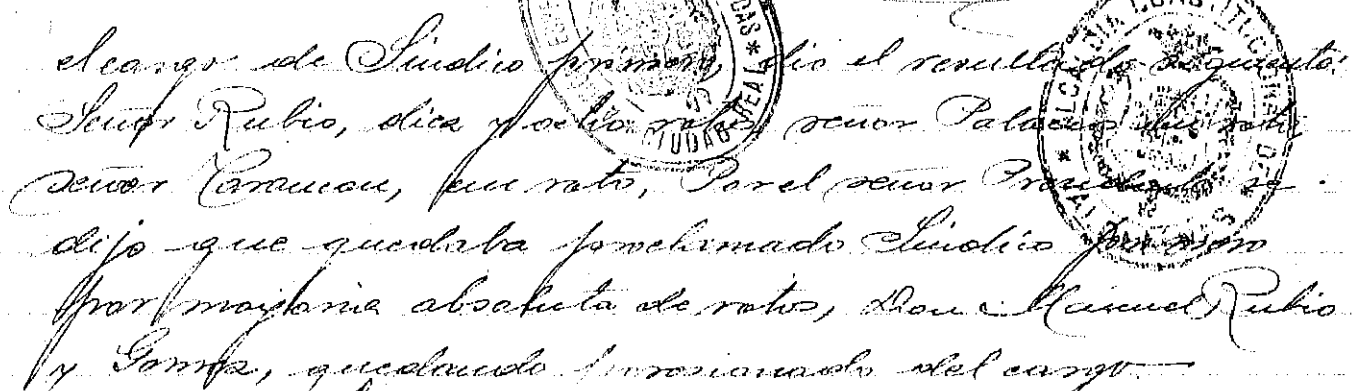 el cargo de Síndico primero, dio el resultado siguiente:
Señor Rubio, diez y ocho votos, señor Palacios un voto,
señor Carancou, un voto, Por el señor Presidente se
dijo que quedaba proclamado Síndico primero
por mayoria absoluta de votos, Don Manuel Rubio
y Gomez, quedando posesionado del cargo.
CIUDAD-REAL
ALCALDIA CONSTITUCIONAL DE